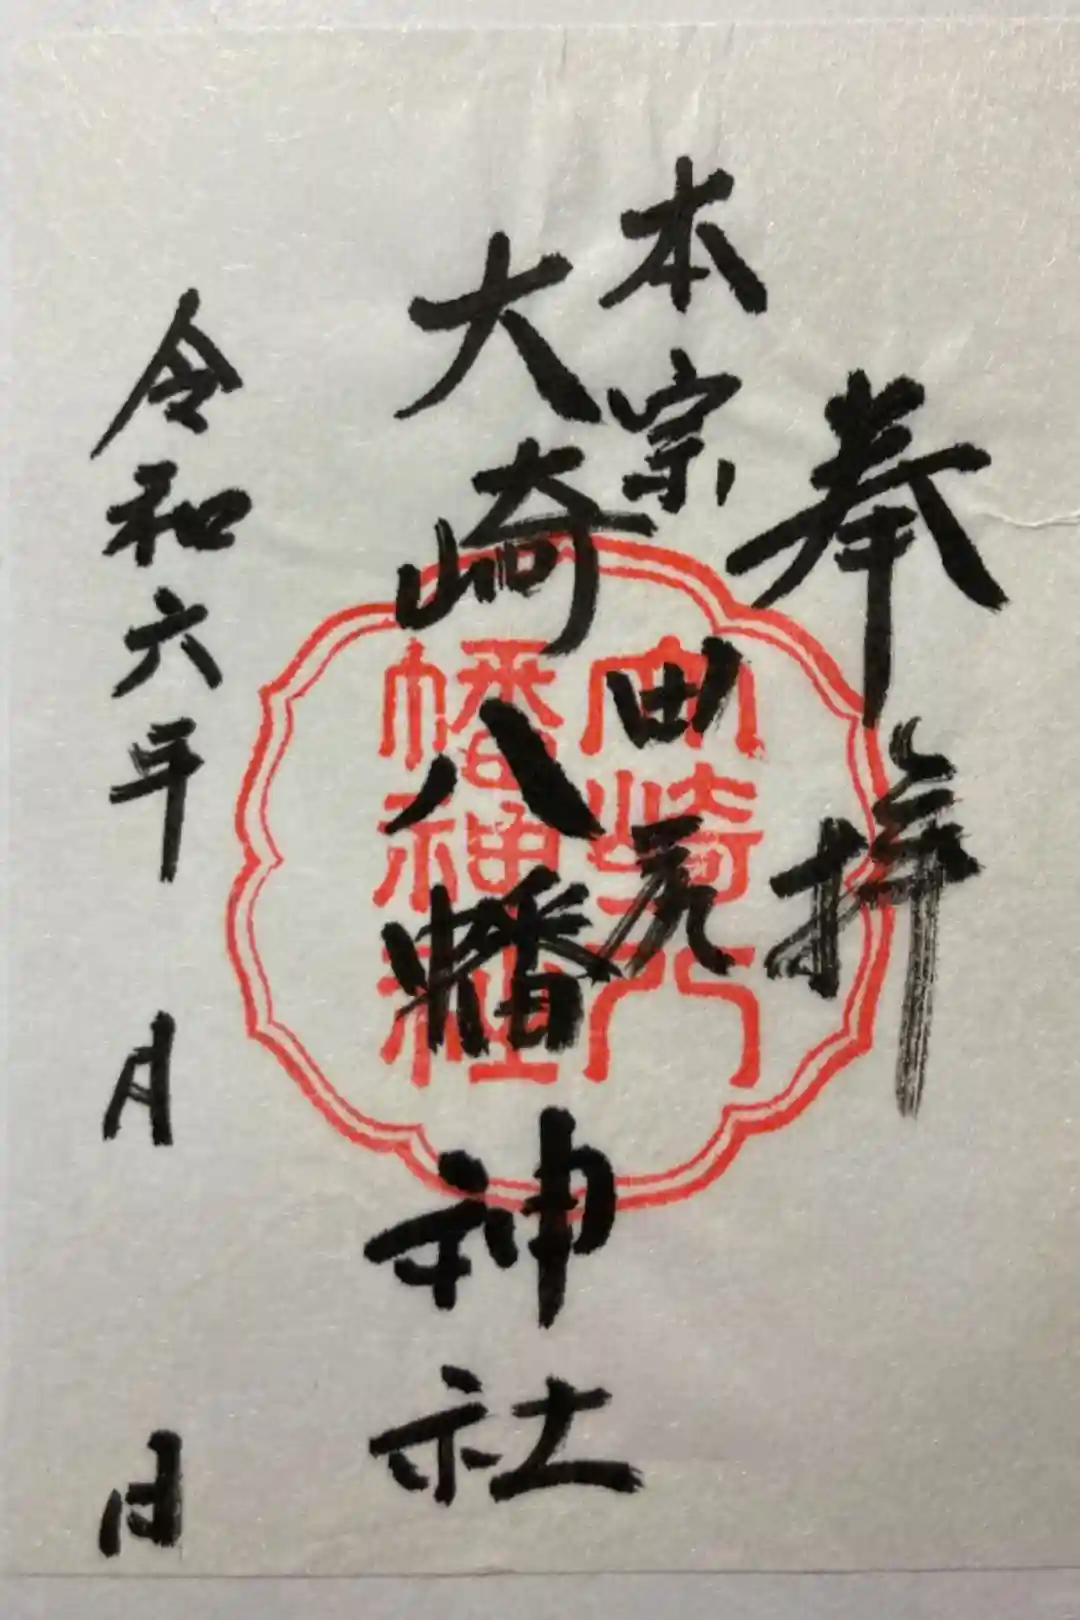 奉拝
本宗田尻
大崎八幡神社
令和六年　月　日
大崎八
幡神社